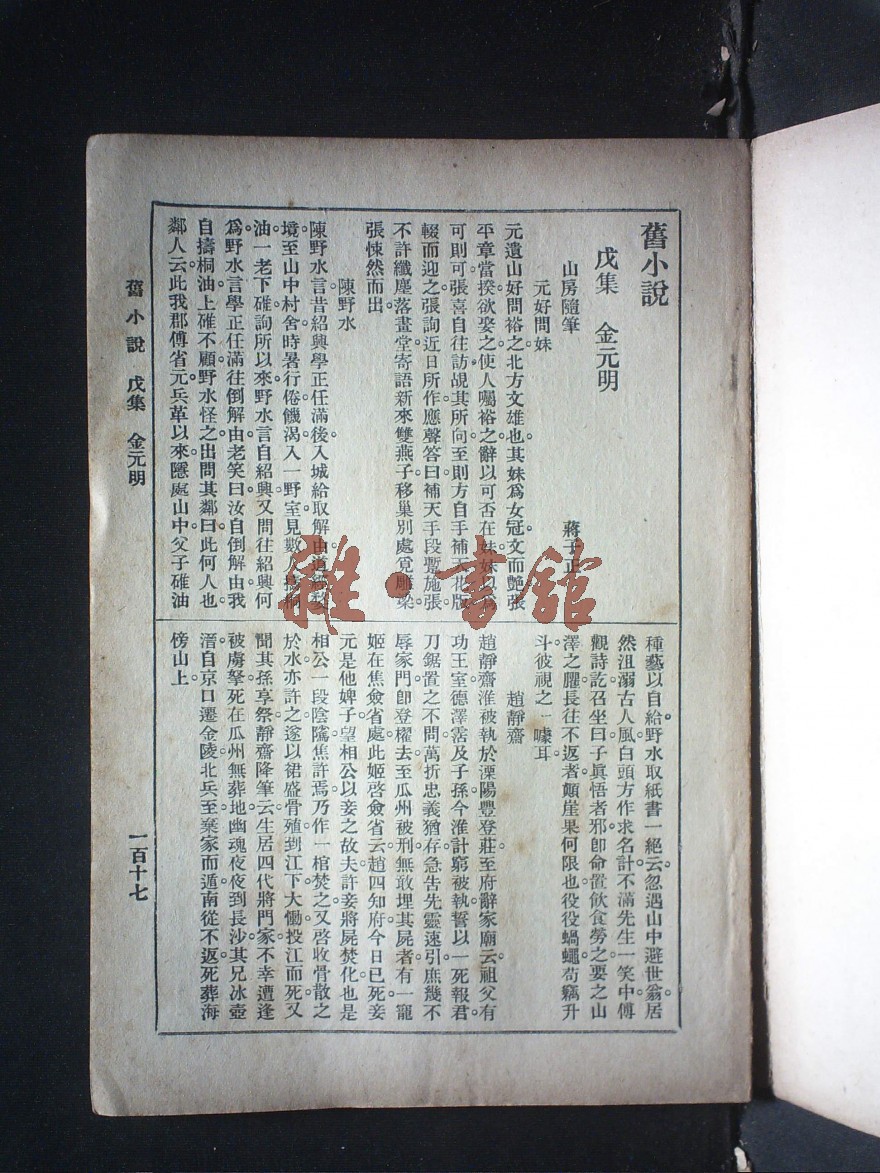 舊小說
戊集　金元明
山房隨筆　蔣子正
元好問妹
元遺山好問裕之北方文雄也其妹爲女冠文而艷張
平章當揆欲娶之使人囑裕之辭以可否在妹妹以爲
可則可張喜自往訪覘其所向至則方自手補天花版
輟而迎之張詢近日所作應聲答曰補天手段暫施張
不許纖塵落畫堂寄語新來雙燕子移巢別處覓雕梁
張悚然而出
陳野水
陳野水言昔紹興學正任滿後入城給取解由道經婺
境至山中村舍時暑行倦饑渴入一野室見數人擣桐
油一老下碓詢所以來野水言自紹興又問往紹興何
爲野水言學正任滿往倒解由老笑曰汝自倒解由我
自擣桐油上碓不顧野水怪之出問其鄰曰此何人也
鄰人云此我郡傅省元兵革以來隱處山中父子碓油
種藝以自給野水取紙書一絕云忽遇山中避世翁居
然沮溺古人風白頭方作求名計不滿先生一笑中傅
觀詩訖召坐曰子眞悟者邪卽命置飲食勞之要之山
澤之臞長往不返者顛崖果何限也役役蝸蠅苟竊升
斗彼視之一噱耳
趙靜齋
趙靜齋淮被執於溧陽豐登莊至府辭家廟云祖父有
功王室德澤霑及子孫今淮計窮被執誓以一死報君
刀鋸置之不問萬折忠義猶存急告先靈速引庶幾不
辱家門卽登櫂去至瓜州被刑無敢埋其屍者有一寵
姬在焦僉省處此姬啓僉省云趙四知府今日已死妾
元是他婢子望相公以妾之故夫許妾將屍焚化也是
相公一段陰隲焦許焉乃作一棺焚之又啓收骨散之
於水亦許之遂以裙盛骨殖到江下大慟投江而死又
聞其孫享祭靜齋降筆云生居四代將門家不幸遭逢
被虜拏死在瓜州無葬地幽魂夜夜到長沙其兄冰壺
溍自京口遷金陵北兵至棄家而遁南從不返死葬海
傍山上
舊小說　戊集　金元明
一百十七
雜·書館